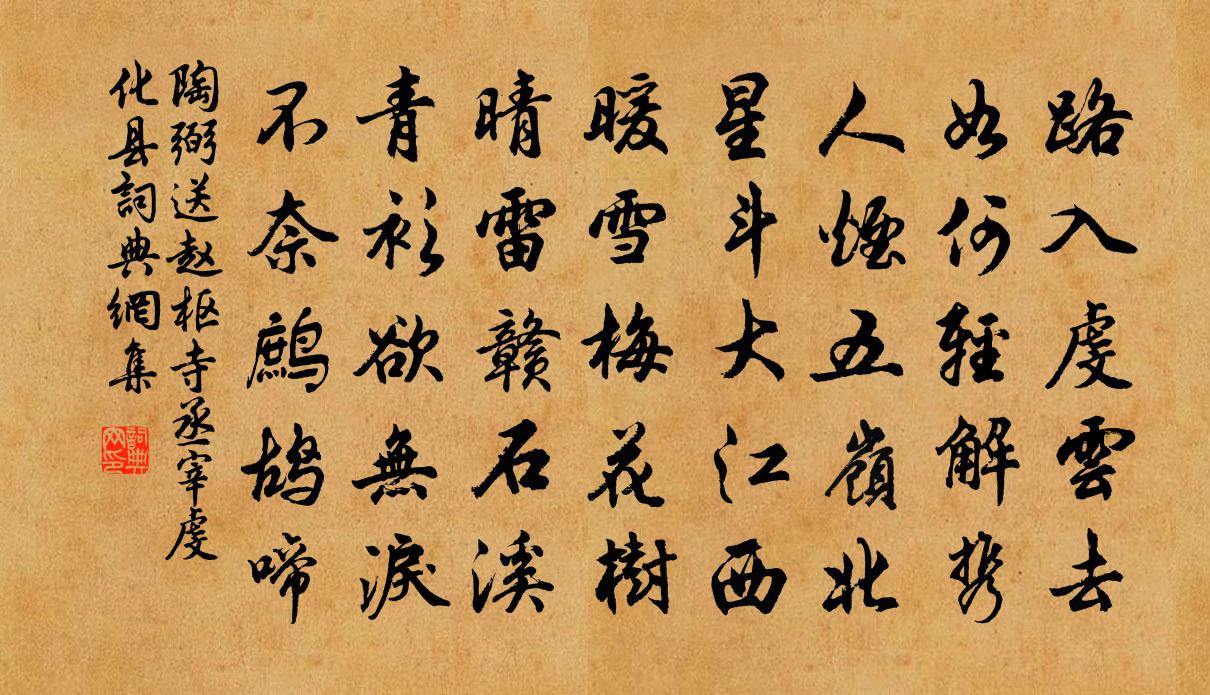 路入虔雲去
如何輕解携
人煙五嶺北
星斗大江西
暖雪梅花樹
晴雷赣石溪
青衫欲無淚
不奈鷓鴣啼
陶弼送赵枢寺丞宰虔
化县詞典網集
詞典网印